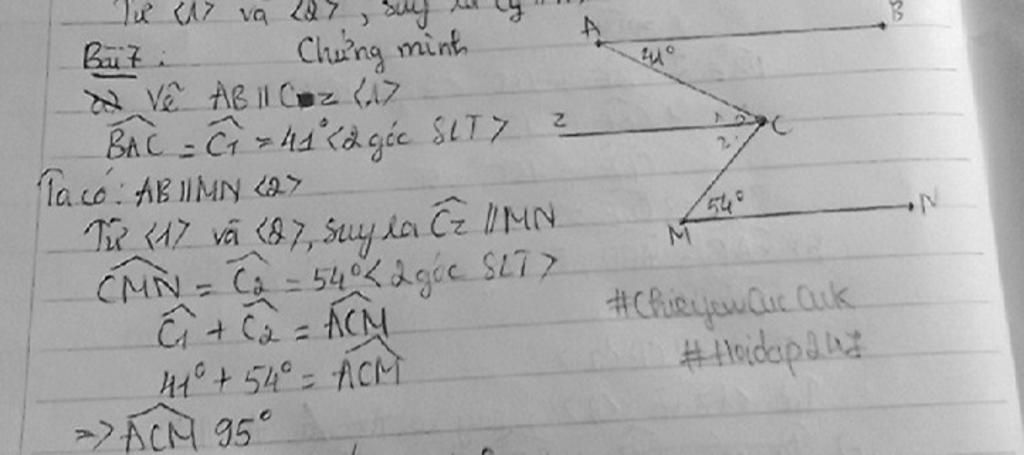 Từ <1> và <2>, suy ra Cz // MN
Bài 7: Chứng minh
Vẽ AB // Cz <1>
BAC = C1 = 41° <2 góc SLT>
Ta có: AB // MN <2>
Từ <1> và <2>, suy ra Cz // MN
CMN = C2 = 54° <2 góc SLT>
C1 + C2 = ACM
41° + 54° = ACM
=> ACM 95°
A
B
41°
z
1
C
2
54°
M
N
#ChieyeuCucCuk
#Hoidap247